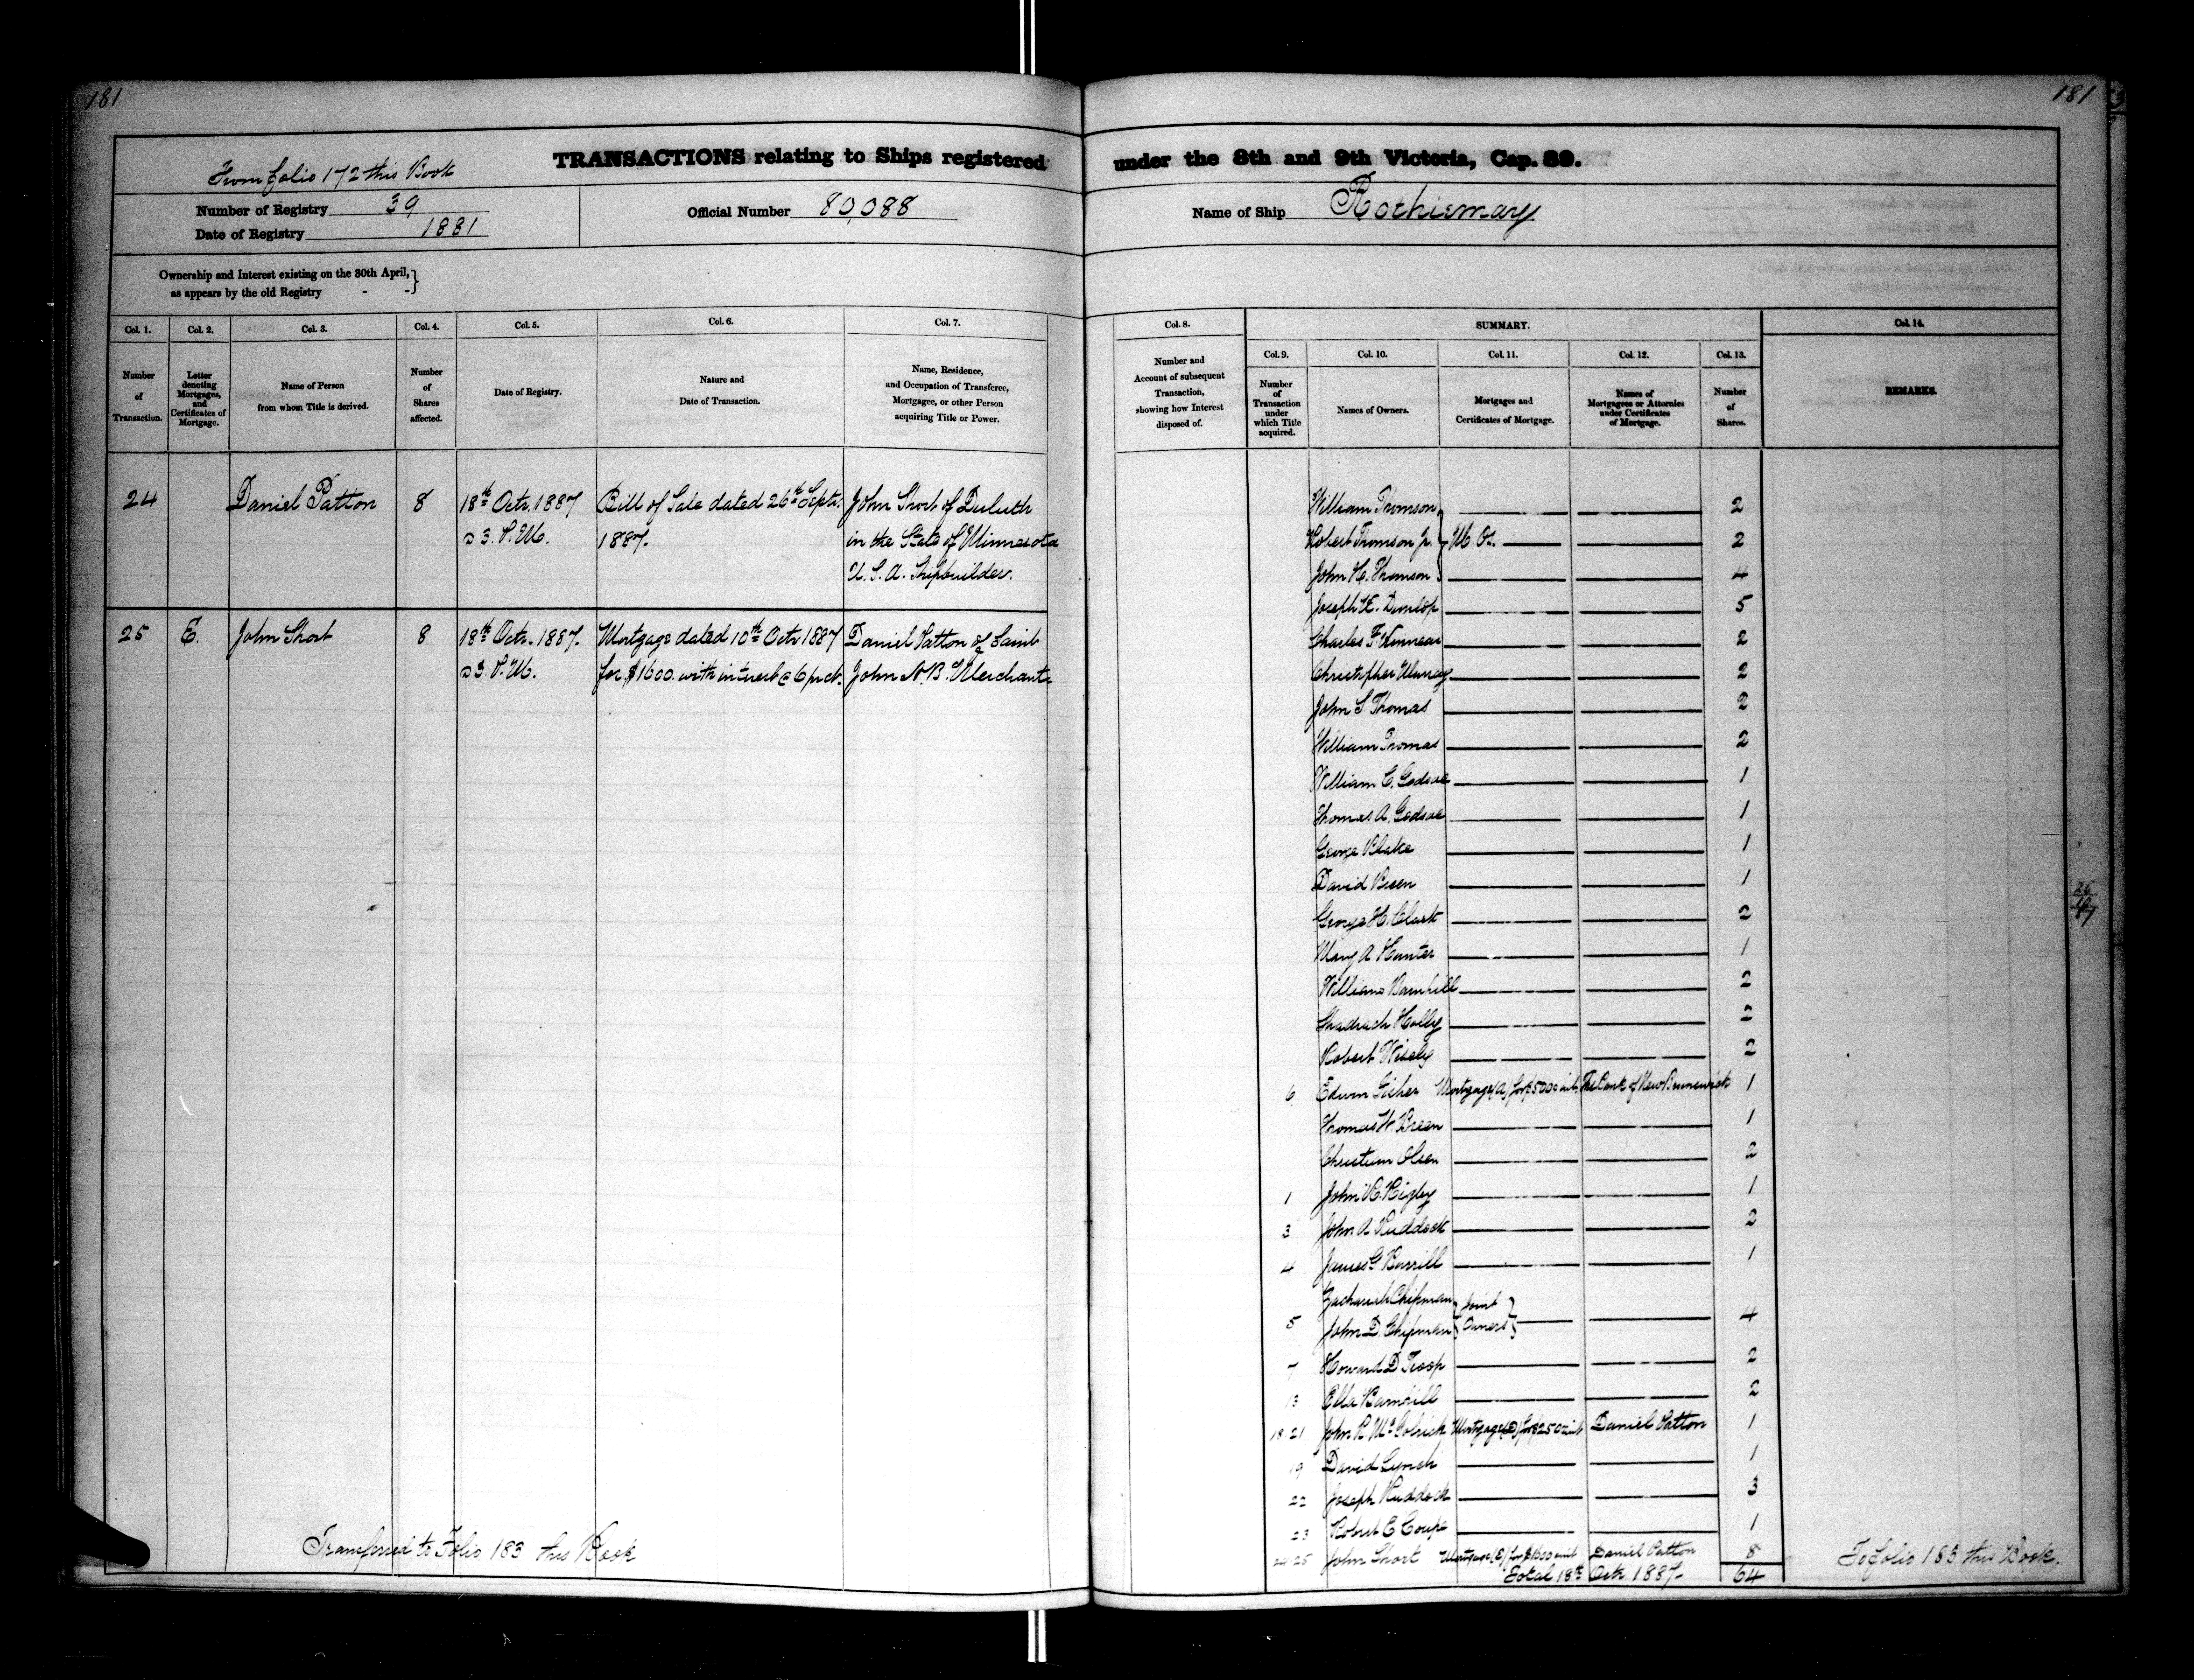 181
181
From folio 172 this Book
TRANSACTIONS relating to Ships registered under the 8th and 9th Victoria, Cap. 89.
Number of Registry 39
Date of Registry 1881
Official Number 80,088
Name of Ship Rothiemay
Ownership and Interest existing on the 30th April, as appears by the old Registry - -}
Col. 1.
Number of Transaction.
Col. 2.
Letter denoting Mortgages, and Certificates of Mortgage.
Col. 3.
Name of Person from whom Title is derived.
Col. 4.
Number of Shares affected.
Col. 5.
Date of Registry.
Col. 6.
Nature and Date of Transaction.
Col. 7.
Name, Residence, and Occupation of Transferee, Mortgagee, or other Person acquiring Title or Power.
Col. 8.
Number and Account of subsequent Transaction, showing how Interest disposed of.
SUMMARY.
Col. 9.
Number of Transaction under which Title acquired.
Col. 10.
Names of Owners.
Col. 11.
Mortgages and Certificates of Mortgage.
Col. 12.
Names of Mortgagees or Attornies under Certificates of Mortgage.
Col. 13.
Number of Shares.
Col. 14.
REMARKS.
24 Daniel Patton 8 18th Octr. 1887 Bill of Sale dated 26th Septr. John Short of Duluth
a 3. P.M. 1887. in the State of Minnesota
U. S. A. Shipbuilder.
25 E. John Short 8 18th Octr. 1887. Mortgage dated 10th Octr 1887 Daniel Patton of Saint
a 3. P.M. for $1600. with interest @ 6 pr ct. John N. B. Merchant
Transferred to Folio 183 this Book
William Thomson 2
Robert Thomson Jr. M. Os. 2
John H. Thomson 4
Joseph E. Dunlop 5
Charles F. Kinnear 2
Christopher Murray 2
John S Thomas 2
William Thomas 2
William C. Godsoe 1
Thomas A. Godsoe 1
George Blake 1
David Breen 1
George H. Clark 2
Mary A Hunter 1
William Barnhill 2
Shadrach Holly 2
Robert Wisely 2
6 Edwin Fisher Mortgage (A) for $5000 int. The Bank of New Brunswick 1
Thomas W. Breen 1
Christian Olsen 2
1 John R. Rigby 1
3 John A Ruddock 2
4 James G Burrill 1
Zachariah Chipman } Joint
5 John D. Chipman } Owners } 4
7 Howard D Troop 2
13 Ella Barnhill 2
18 21 John R McGolrick Mortgage (D) for $250 int Daniel Patton 1
19 David Lynch 1
22 Joseph Ruddock 3
23 Robert C Coupe 1
24 25 John Short Mortgage (E) for $1600 int Daniel Patton 8
Total 18th Octr 1887 - 64
To folio 183 this Book.
26